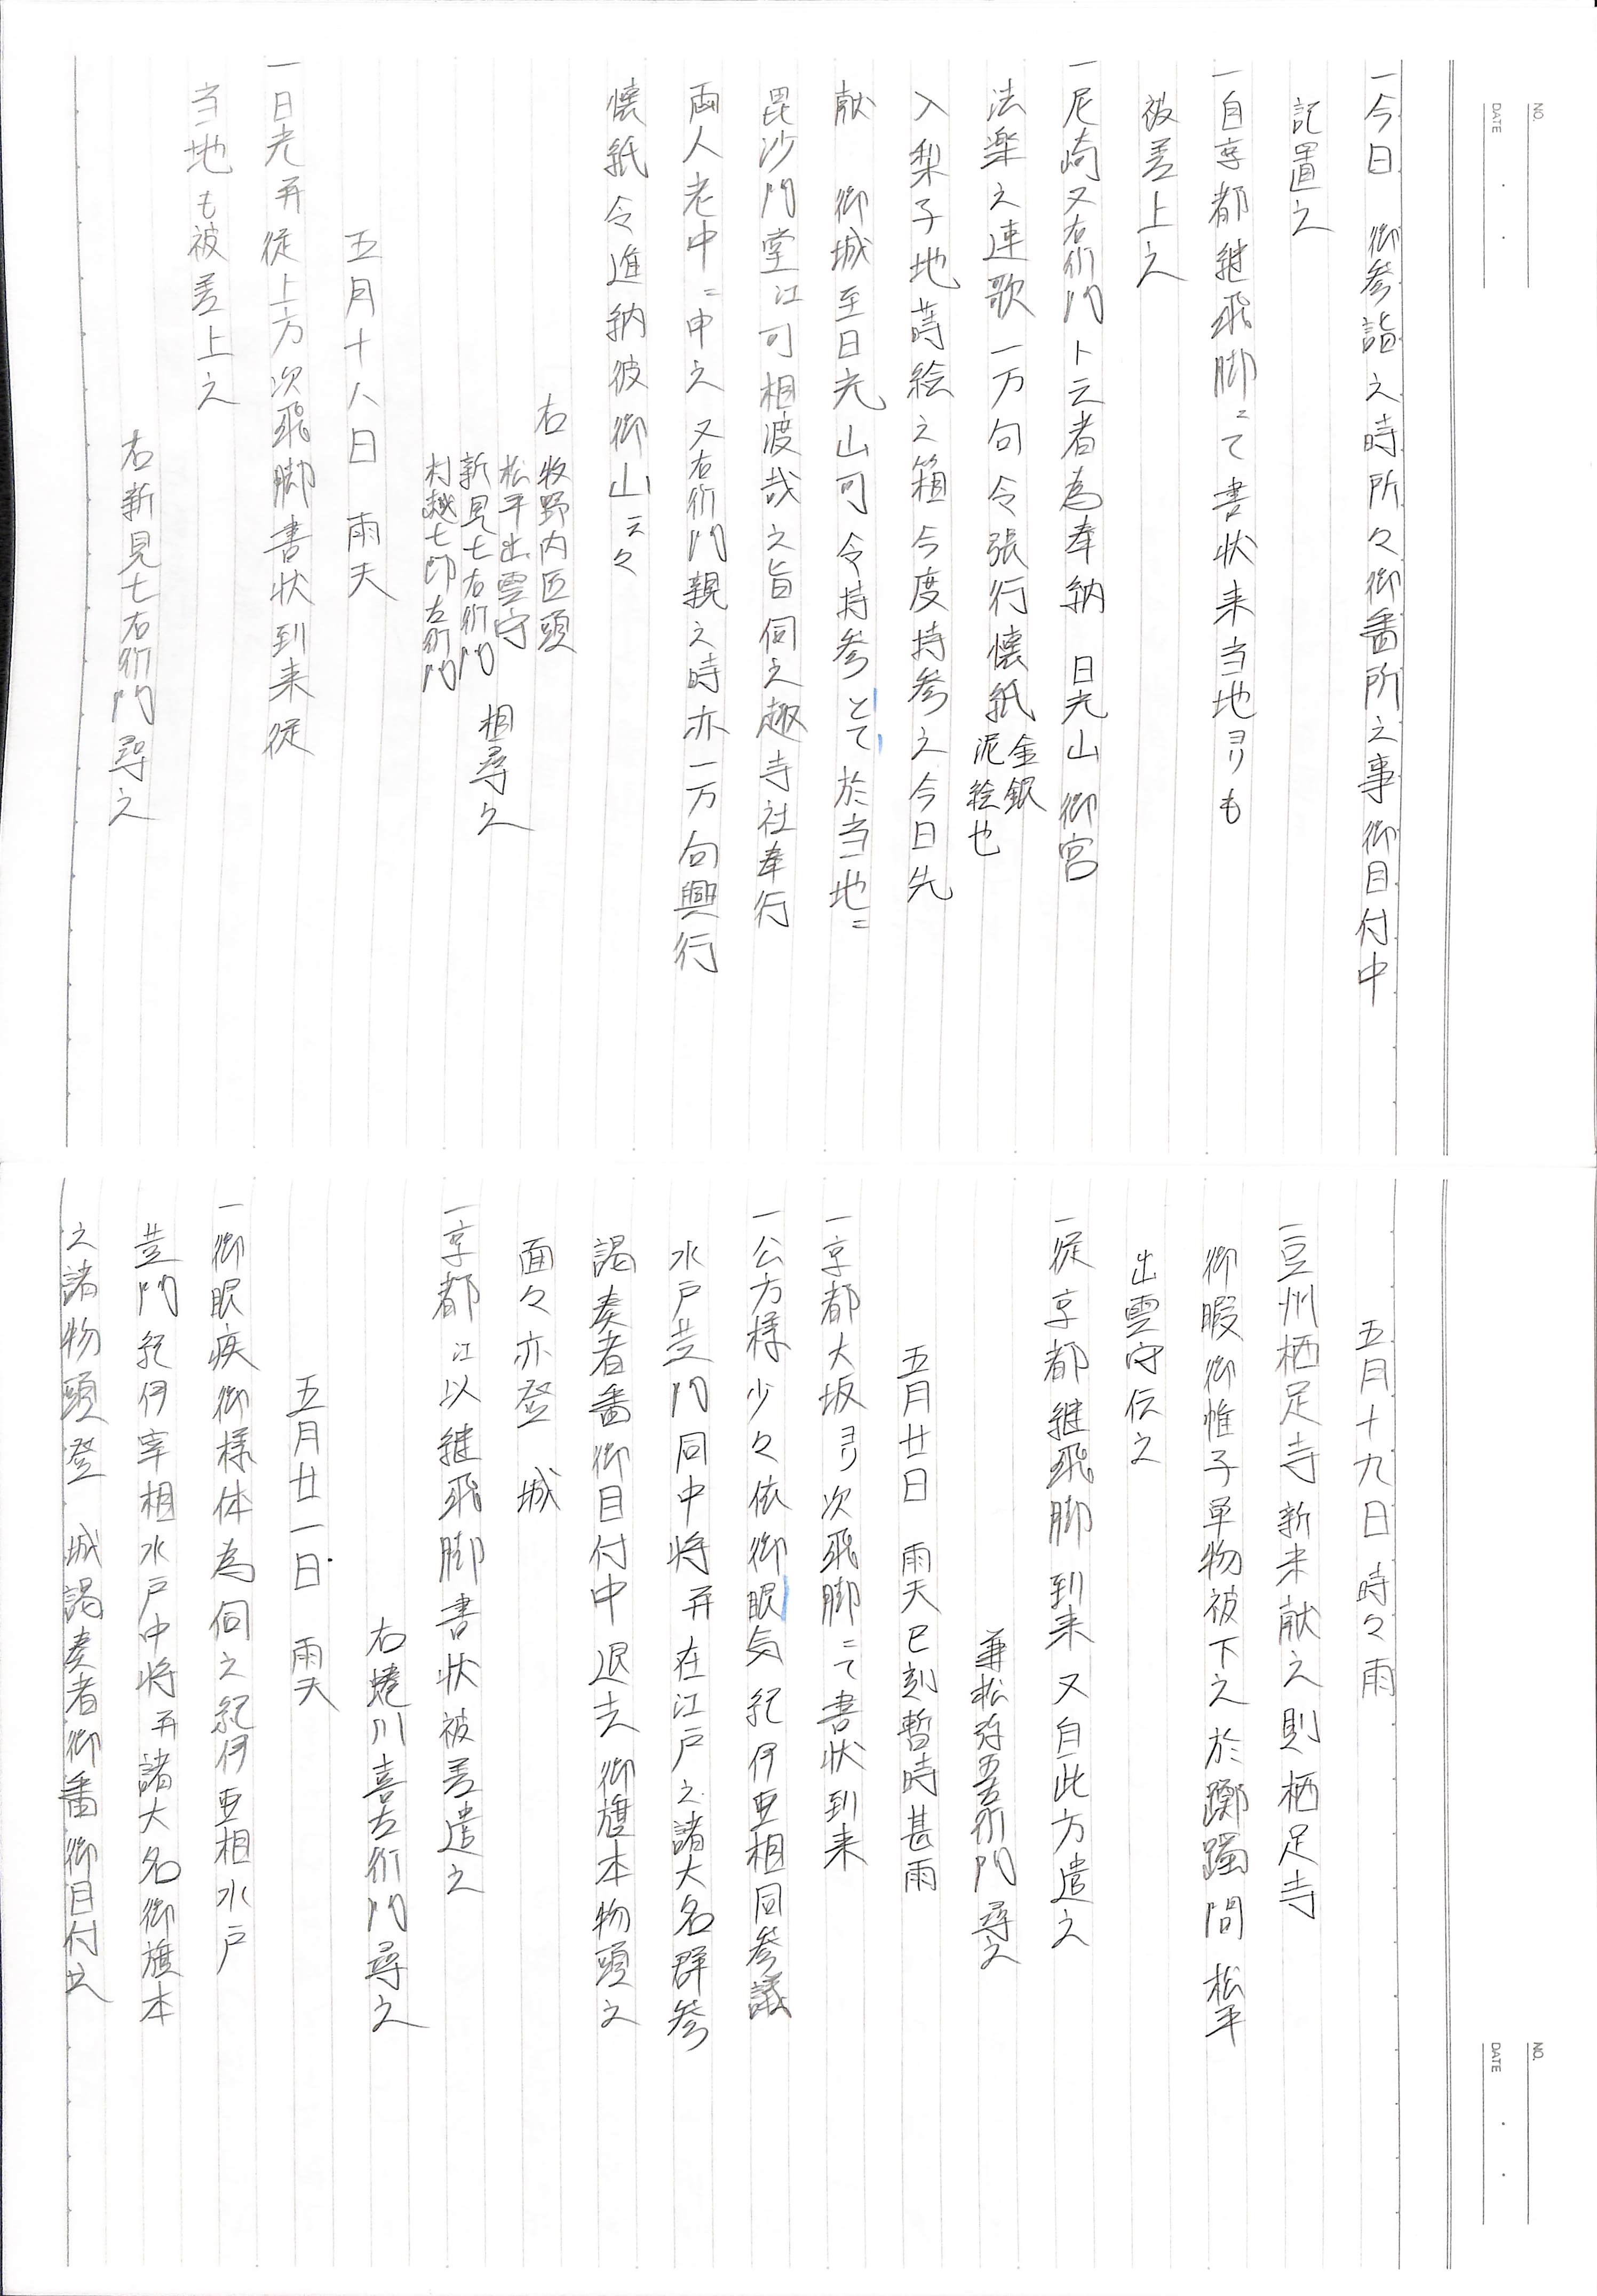 NO.
DATE
一今日　御参詣之時所々御番所之事御目付中
記置之
一自京都継飛脚ニて書状来当地ヨリも
被差上之
一尼崎又右衛門ト云者為奉納　日光山　御宮
法楽之連歌一万句令張行懐紙金銀泥絵也
入梨子地蒔絵之箱今度持参之今日先
献　御城至日光山可令持参とて於当地ニ
毘沙門堂江可相渡哉之旨伺之趣寺社奉行
両人老中ニ申之又右衛門親之時亦一万句興行
懐紙令進納彼御山云々
右　牧野内匠頭
松平出雲守
新見七右衛門
村越七郎左衛門
相尋之
五月十八日　雨天
一日光并従上方次飛脚書状到来従
当地も被差上之
右新見七右衛門尋之
NO.
DATE
五月十九日　時々雨
一豆州栖足寺新末献之則栖足寺
御暇御帷子単物被下之於躑躅間　松平
出雲守伝之
一従京都継飛脚到来又自此方遣之
兼松弥五左衛門尋之
五月廿日　雨天　巳刻暫時甚雨
一京都大坂ヨリ次飛脚ニて書状到来
一公方様少々依御眼気紀伊亜相同参議
水戸黄門同中将并在江戸之諸大名群参
謁奏者番御目付中退去　御旗本物頭之
面々亦登　城
一京都江以継飛脚書状被差遣之
右蜷川喜左衛門尋之
五月廿一日　雨天
一御眼疾御様体為伺之紀伊亜相水戸
黄門紀伊宰相水戸中将并諸大名御旗本
之諸物頭登　城謁奏者御番御目付立